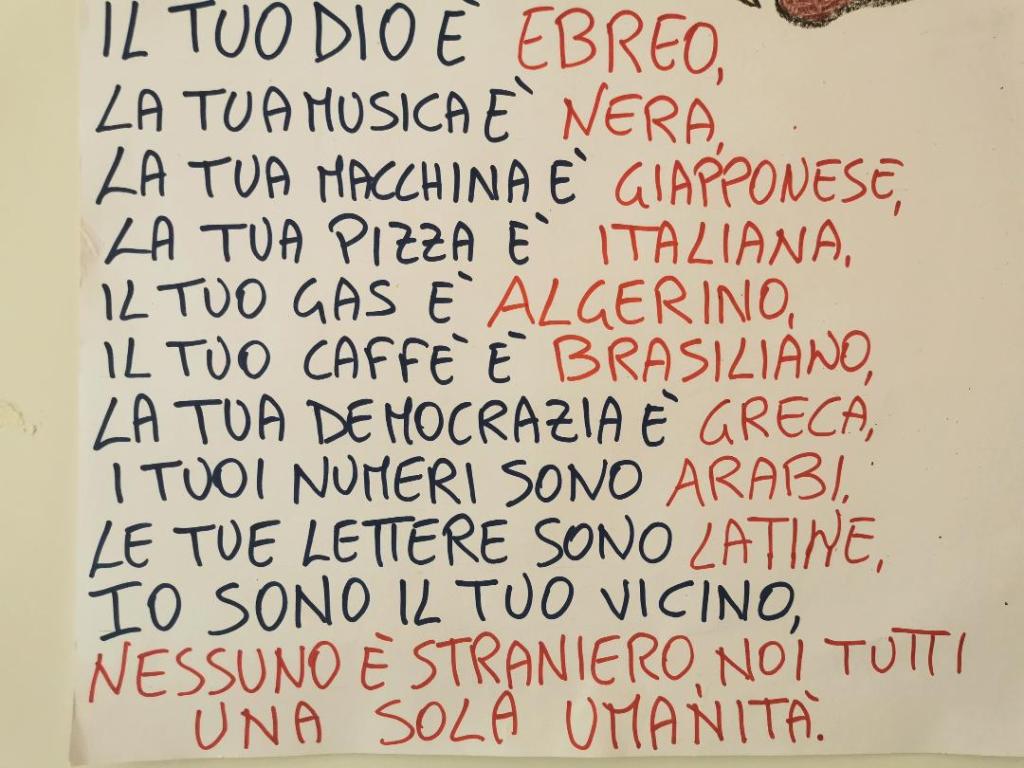 IL TUO DIO È EBREO,
LA TUA MUSICA È NERA,
LA TUA MACCHINA È GIAPPONESE,
LA TUA PIZZA È ITALIANA,
IL TUO GAS È ALGERINO,
IL TUO CAFFÈ È BRASILIANO,
LA TUA DEMOCRAZIA È GRECA,
I TUOI NUMERI SONO ARABI,
LE TUE LETTERE SONO LATINE,
IO SONO IL TUO VICINO,
NESSUNO È STRANIERO, NOI TUTTI
UNA SOLA UMANITÀ.